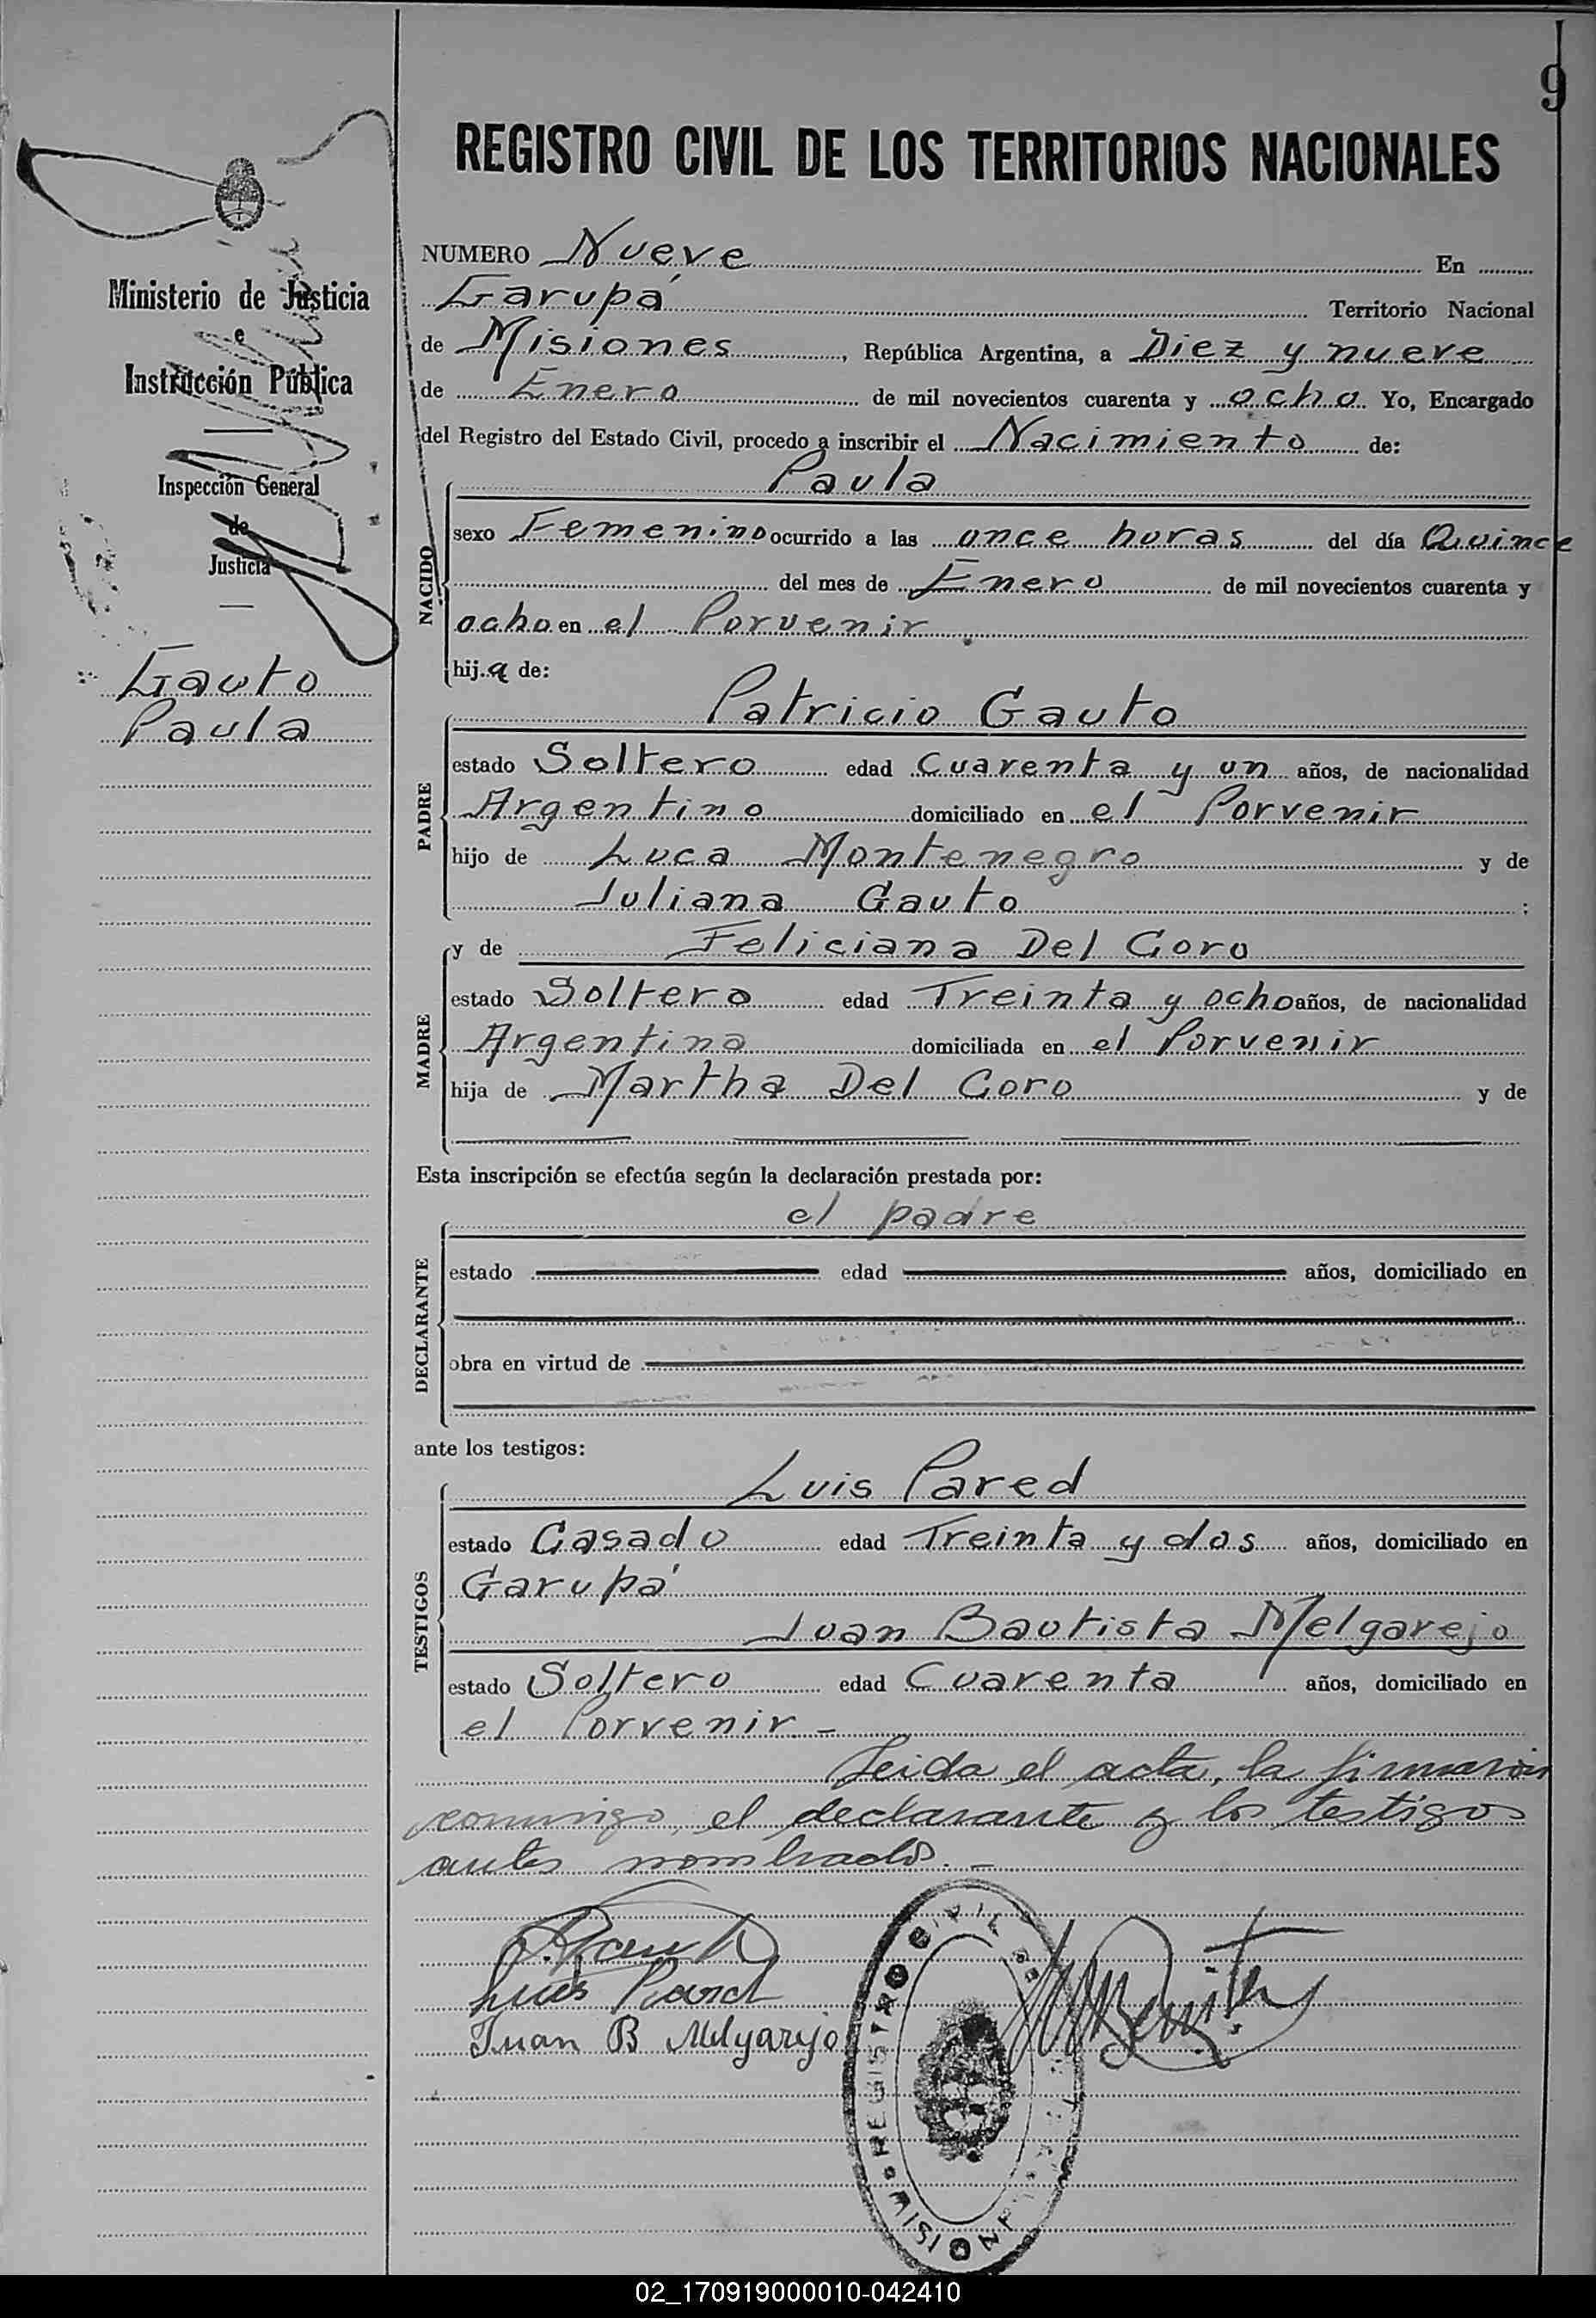 9
REGISTRO CIVIL DE LOS TERRITORIOS NACIONALES
Ministerio de Justicia
e
Instrucción Pública
Inspección General
de
Justicia
Gauto
Paula
NUMERO Nueve En
Garupá Territorio Nacional
de Misiones, República Argentina, a Diez y nueve
de Enero de mil novecientos cuarenta y ocho Yo, Encargado
del Registro del Estado Civil, procedo a inscribir el Nacimiento de:
NACIDO
Paula
sexo Femenino ocurrido a las once horas del día Quince
del mes de Enero de mil novecientos cuarenta y
ocho en el Porvenir
hija de:
PADRE
Patricio Gauto
estado Soltero edad Cuarenta y un años, de nacionalidad
Argentino domiciliado en el Porvenir
hijo de Luca Montenegro y de
Juliana Gauto ;
MADRE
y de Feliciana Del Coro
estado Soltera edad Treinta y ocho años, de nacionalidad
Argentina domiciliada en el Porvenir
hija de Martha Del Coro y de
Esta inscripción se efectúa según la declaración prestada por:
DECLARANTE
el padre
estado edad años, domiciliado en
obra en virtud de
ante los testigos:
TESTIGOS
Luis Pared
estado Casado edad Treinta y dos años, domiciliado en
Garupá
Juan Bautista Melgarejo
estado Soltero edad Cuarenta años, domiciliado en
el Porvenir -
Leida el acta, la firmaron
conmigo, el declarante y los testigos
antes nombrados. -
P. Gauto
Luis Pared
Juan B Melgarejo
REGISTRO CIVIL
MISIONES
02_170919000010-042410